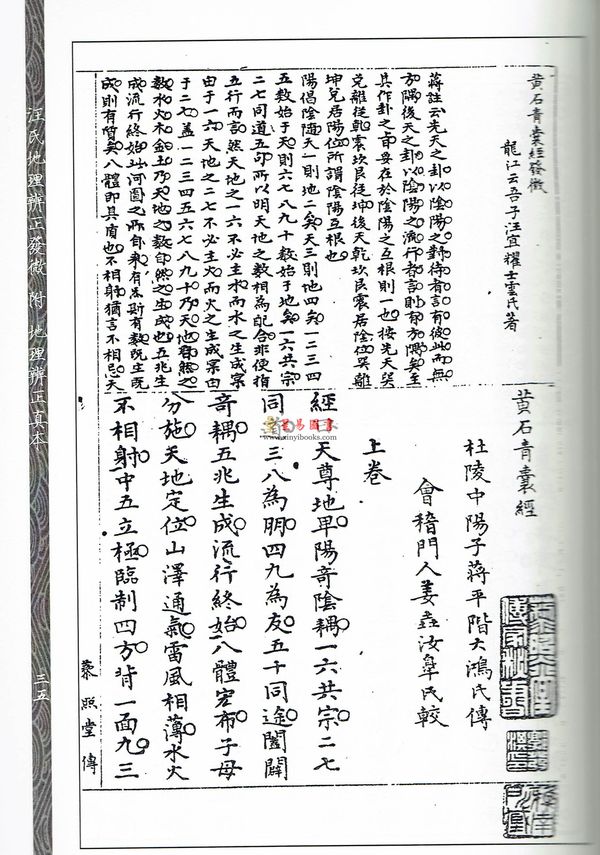 黃石青囊經發微
龍江云吾子汪宜耀士雲氏著
蔣註云先天之卦以陰陽之對待者言有彼此而無
方隅後天之卦以陰陽之流行者言則有方隅矣至
其作卦之旨要在於陰陽之互根則一也按先天巽
兌離從乾震坎艮從坤後天乾坎艮震居陰位巽離
坤兌居陽位所謂陰陽互根也
陽倡陰隨天一則地二矣天三則地四矣一二三四
五數始于天則六七八九十數始于地矣一六共宗
二七同道五句所以明天地之數相為配合非使指
五行而言然天地之一六不必主水而水之生成寔
由于一六天地之二七不必主火而火之生成寔由
于二七蓋一二三四五六七八九十乃天地自然之
數水火木金土乃天地之數自然之生成也五兆生
成流行終始此河圖之所自來有氣斯有數既生既
成則有質矣八體即具也不相射猶言不相忌天
黃石青囊經
杜陵中陽子蔣平階大鴻氏傳
會稽門人姜垚汝皋氏較
上卷
經曰天尊地卑陽奇陰耦一六共宗二七
同道三八為朋四九為友五十同途闔闢
奇耦五兆生成流行終始八體宏布子母
分施天地定位山澤通氣雷風相薄水火
不相射中五立極臨制四方背一面九三
蔡照堂傳
汪氏地理辨正發微 附 地理辨正真本
三五
星易圖書
www.xinyibooks.com